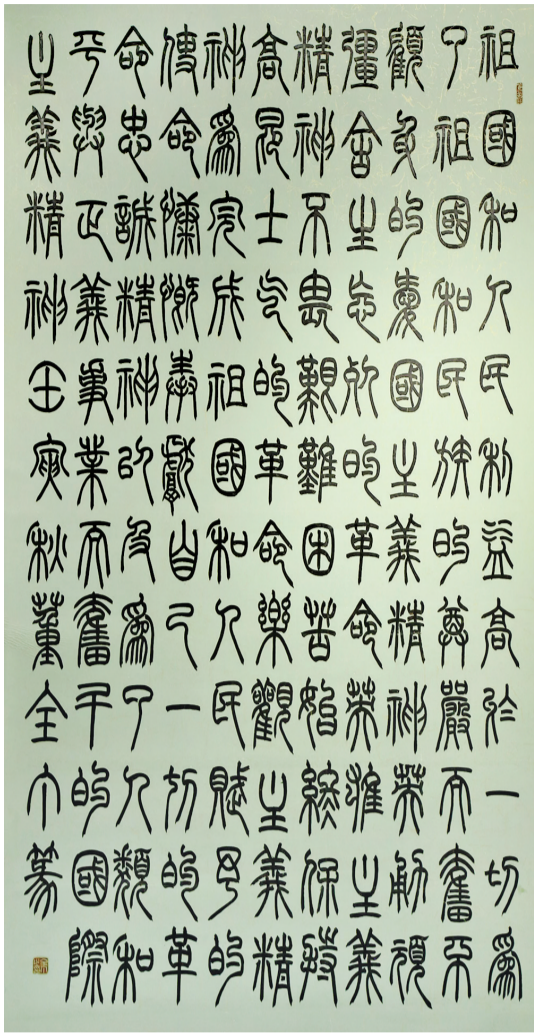 祖國和人民利益高於一切爲
了祖國和民族的尊嚴而奮不
顧身的愛國主義精神英勇頑
彊舍生忘死的革命英雄主義
精神不畏艱難困苦始終保持
高昂士气的革命樂觀主義精
神爲完成祖國和人民賦予的
使命慷慨奉獻自己一切的革
命忠誠精神以及爲了人類和
平與正義事業而奮斗的國際
主義精神壬寅秋董全篆